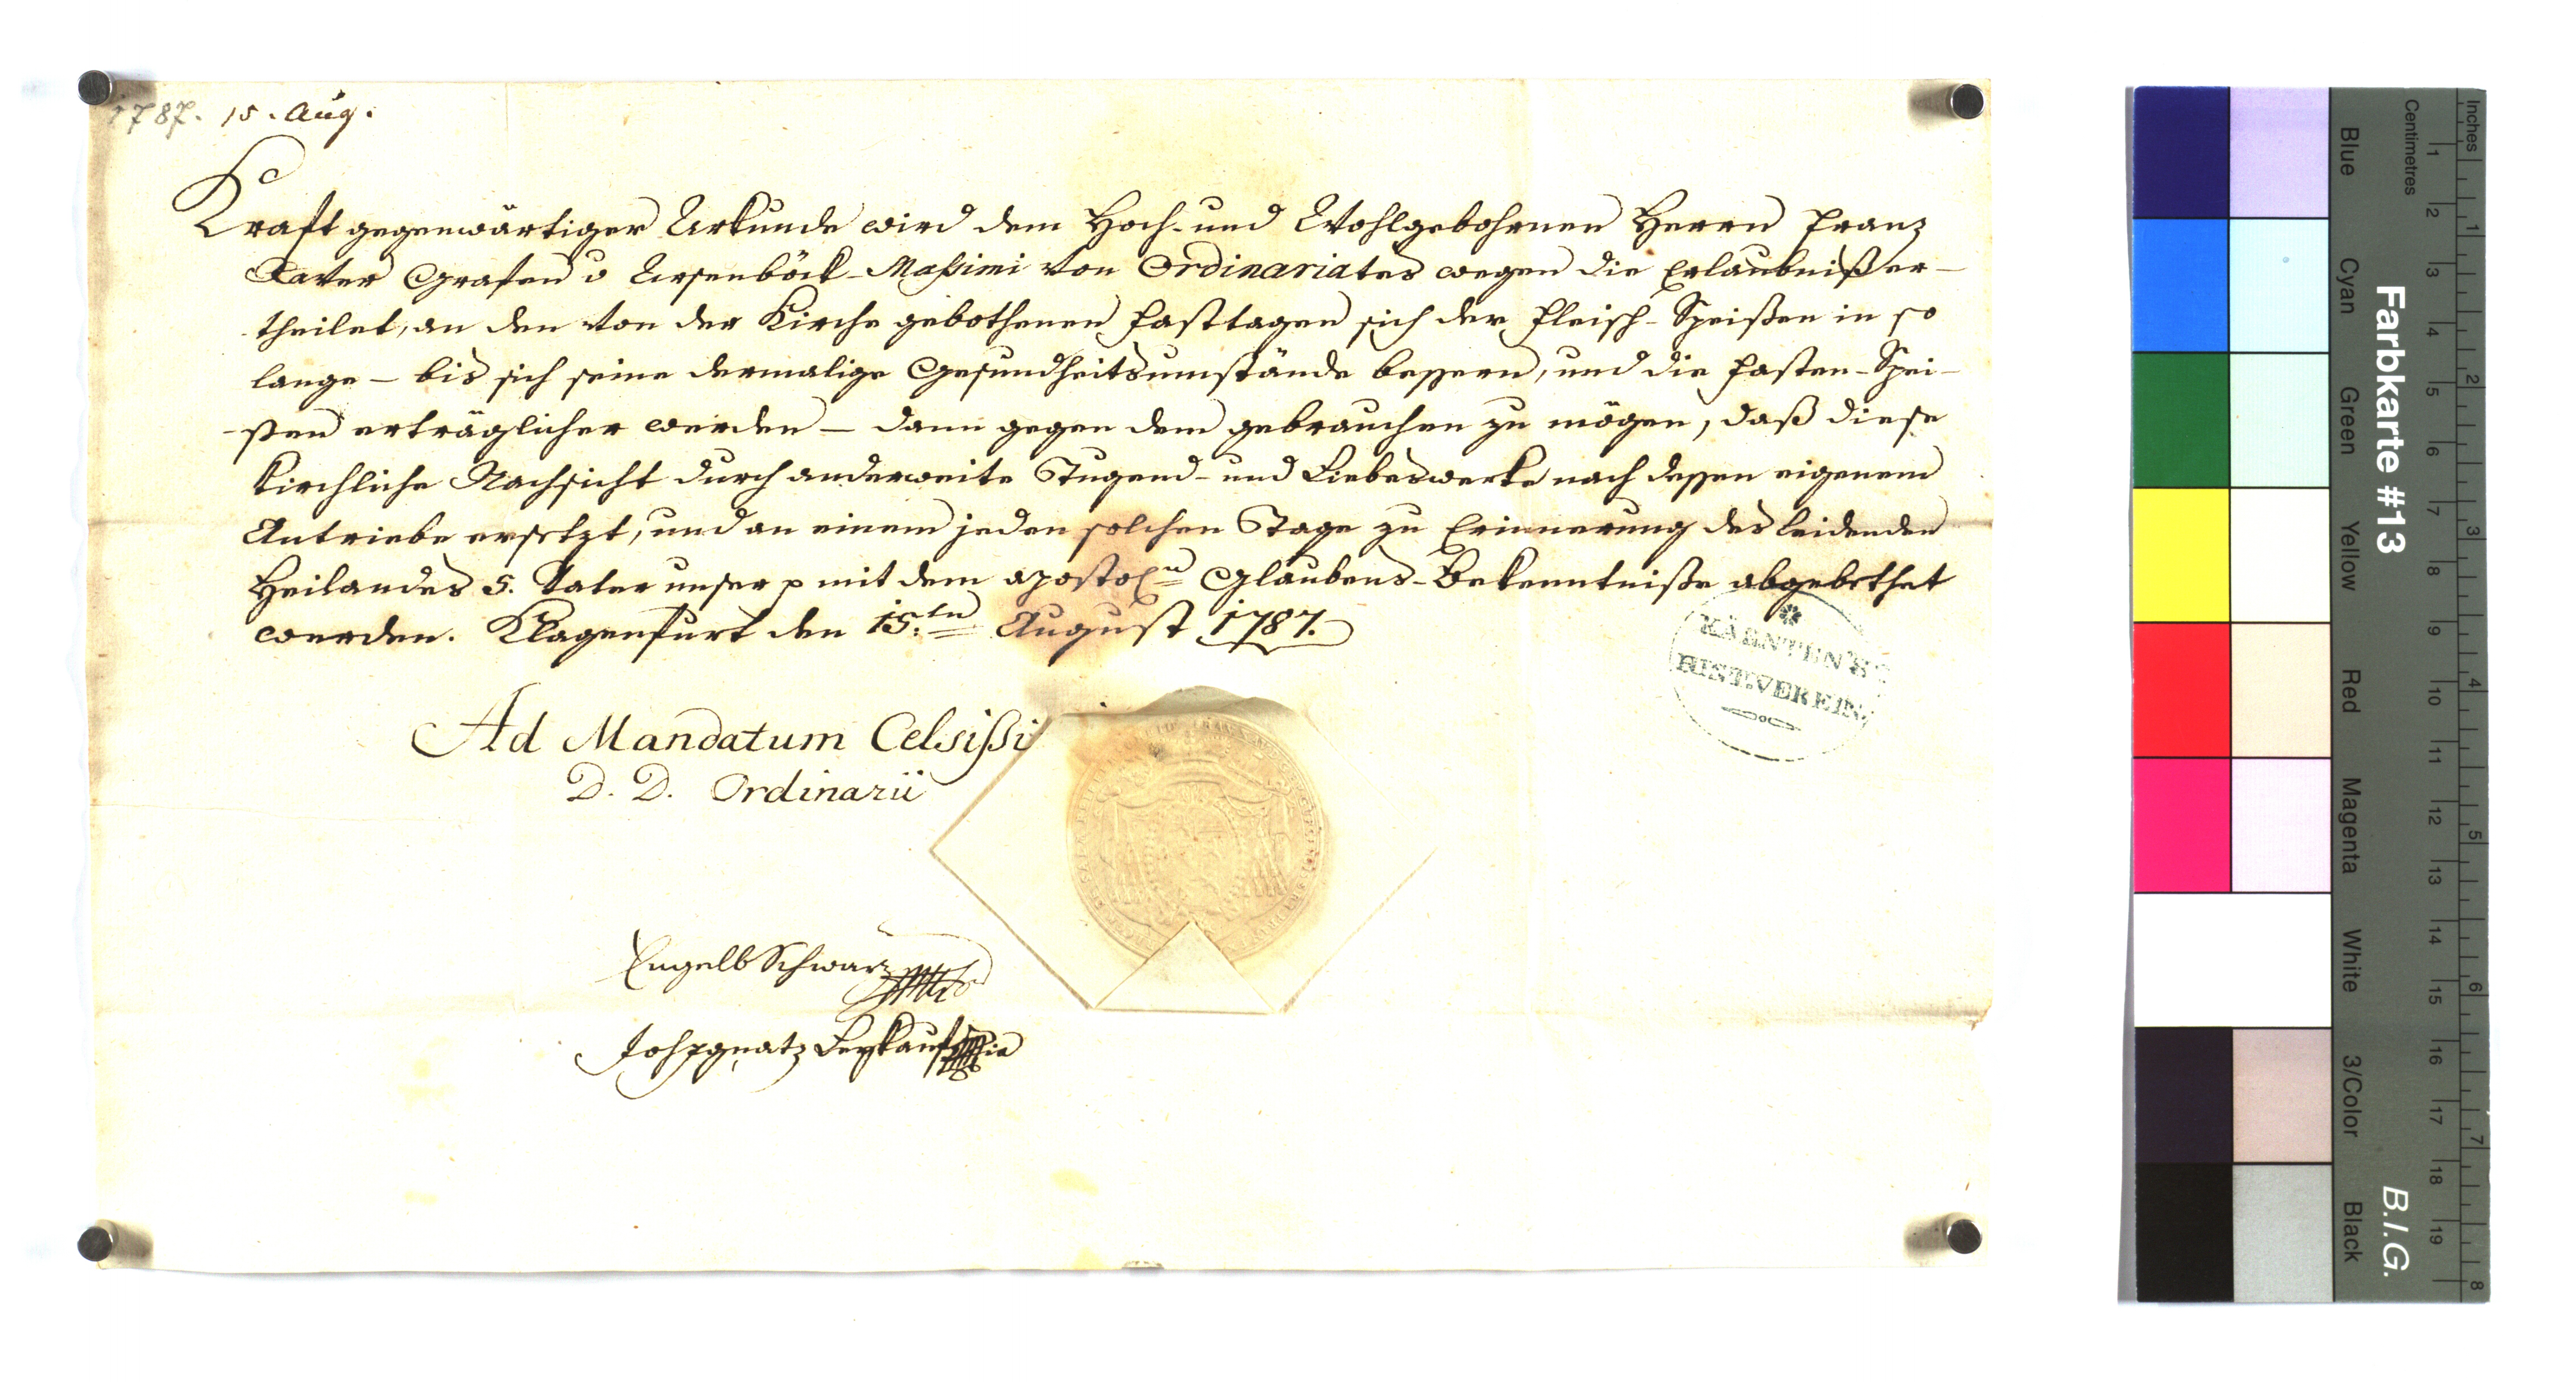 1787. 15. Aug.
Kraft gegenwärtiger Urkunde wird dem Hoch- und Wohlgebohrnen Herrn Franz
Xaver Grafen v Ursenböck-Maßimi von Ordinariates wegen die Erlaubniß er-
theilet, an den von der Kirche gebothenen Fasttagen sich der Fleisch-Speißen in so
lange – bis sich seine dermalige Gesundheitsumstände bessern, und die Fasten-Spei-
ßen erträglicher werden – dann gegen dem gebrauchen zu mögen, daß diese
kirchliche Nachsicht durch anderweite Tugend- und Liebeswerke nach dessen eigenem
Antriebe ersetzt, und an einem jeden solchen Tage zu Erinnerung des leidenden
Heilandes 5. Vater unser p mit dem apostol:n Glaubens-Bekenntniße abgebethet
werden. Klagenfurt den 15:ten August 1787.
Ad Mandatum Celsißi
D. D. Ordinarii
Engelb Schwarz
Joh Ignatz Leykauf
KÄRNTEN'S
HIST. VEREIN
Farbkarte #13
B.I.G.
Inches
Centimetres
1 2 3 4 5 6 7 8 9 10 11 12 13 14 15 16 17 18 19
1 2 3 4 5 6 7 8
Blue
Cyan
Green
Yellow
Red
Magenta
White
3/Color
Black